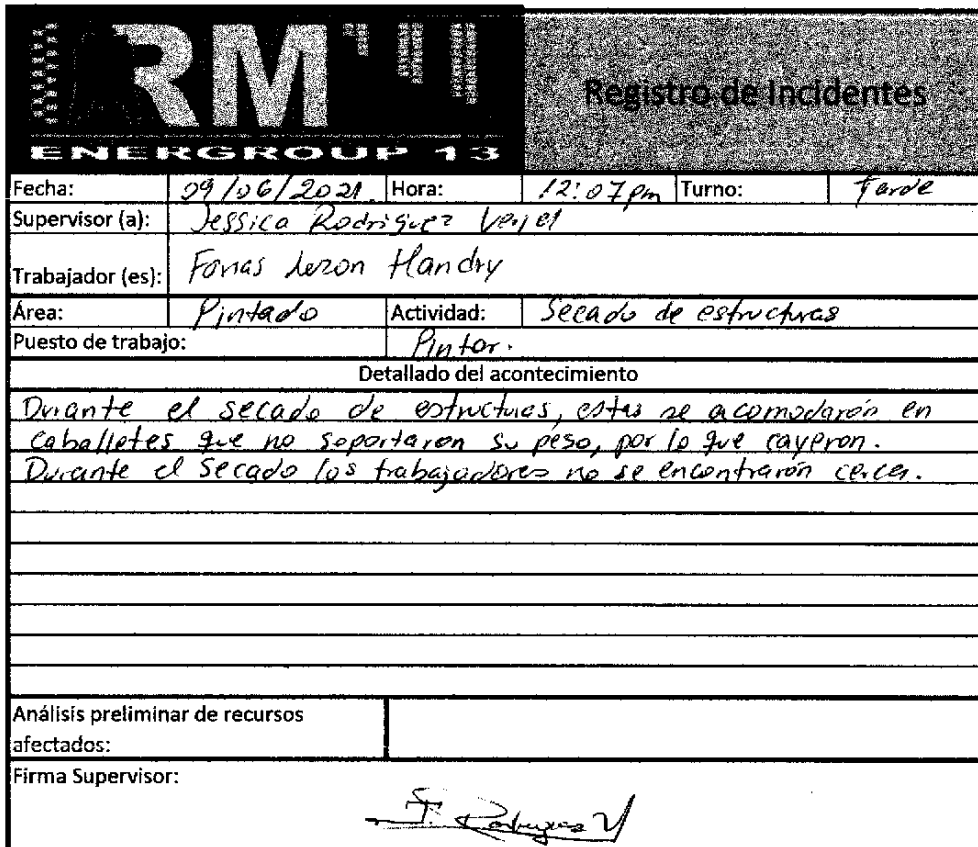 RM
ENERGROUP 13
Registro de Incidentes
Fecha: 09/06/2021 Hora: 12:07pm Turno: Tarde
Supervisor (a): Jessica Rodriguez
Trabajador (es): Handry
Área: Pintado Actividad: Secado de estructuras
Puesto de trabajo: Pintor.
Detallado del acontecimiento
Durante el secado de estructuras, estas se acomodarón en
caballetes que no soportaron su peso, por lo que cayeron.
Durante el secado los trabajadores no se encontrarón cerca.
Análisis preliminar de recursos
afectados:
Firma Supervisor: